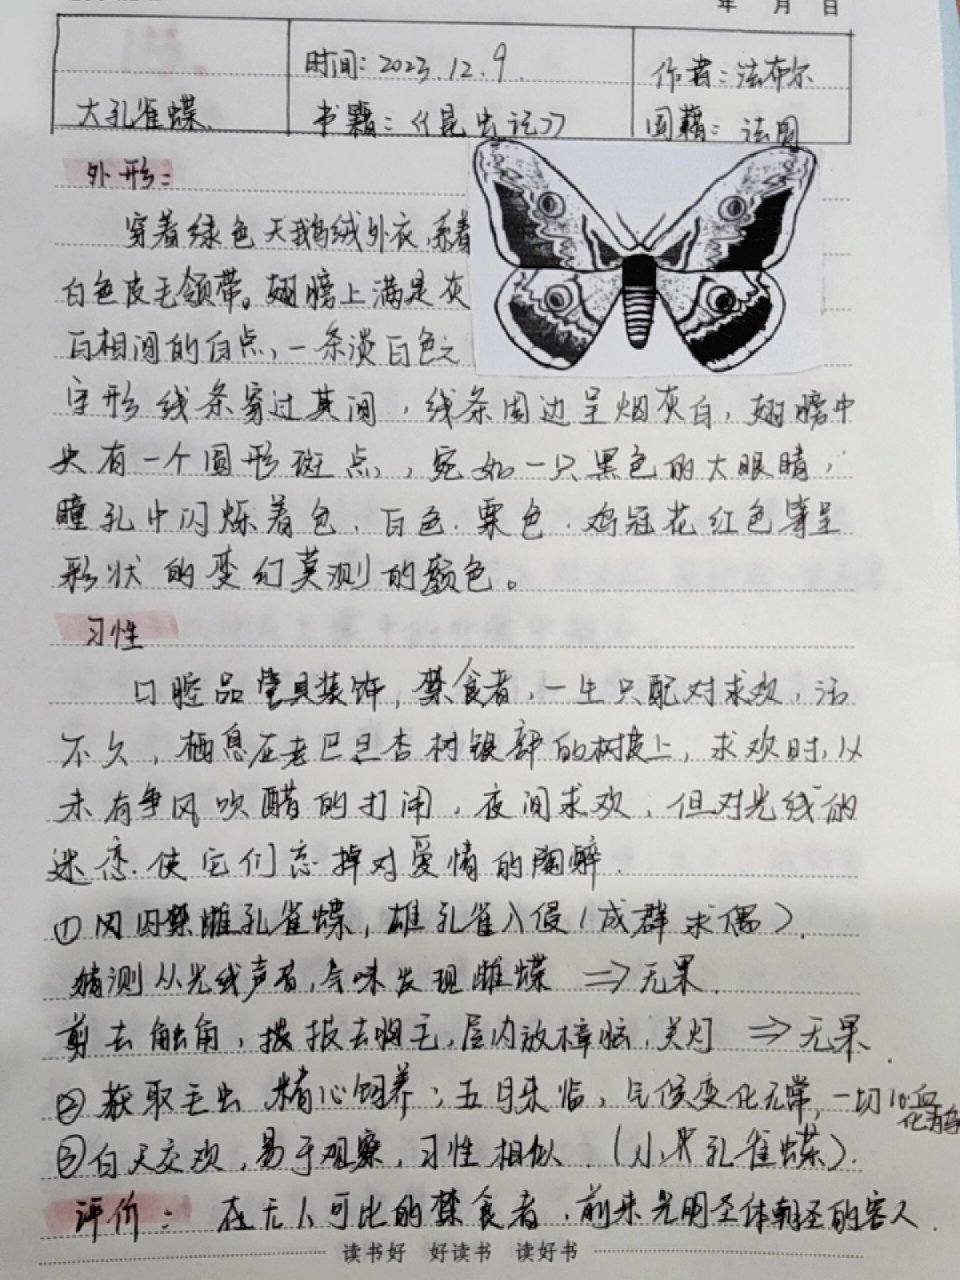 年 月 日
大孔雀蝶.
时间: 2023.12.9.
书籍:《昆虫记》
作者: 法布尔
国籍: 法国
外形:
穿着绿色天鹅绒外衣,系着
白色皮毛领带。翅膀上满是灰
白相间的白点,一条淡白色之
字形线条穿过其间,线条周边呈烟灰白,翅膀中
央有一个圆形斑点,,宛如一只黑色的大眼睛,
瞳孔中闪烁着色、白色.栗色.鸡冠花红色等呈
彩状的变幻莫测的颜色。
习性
口腔品 装饰,禁食者,一生只配对求欢,活
不久,栖息在老巴旦杏树根部的树皮上,求欢时,从
未有争风吹醋的打闹,夜间求欢,但对光线的
迷恋.使它们忘掉对爱情的陶醉.
① 囚禁雌孔雀蝶,雄孔雀入侵(成群求偶).
猜测从光线声音,气味发现雌蝶 ⇒无果.
剪去触角,拔去胸毛,屋内放樟脑,关灯 ⇒无果.
② 获取毛虫 精心饲养;五月来临,气候变化无常,一切
③ 白天交欢,易于观察,习性相似.(小 孔雀蝶).
评价: 在无人可比的禁食者,前来光明圣体朝圣的客人.
读书好 好读书 读好书